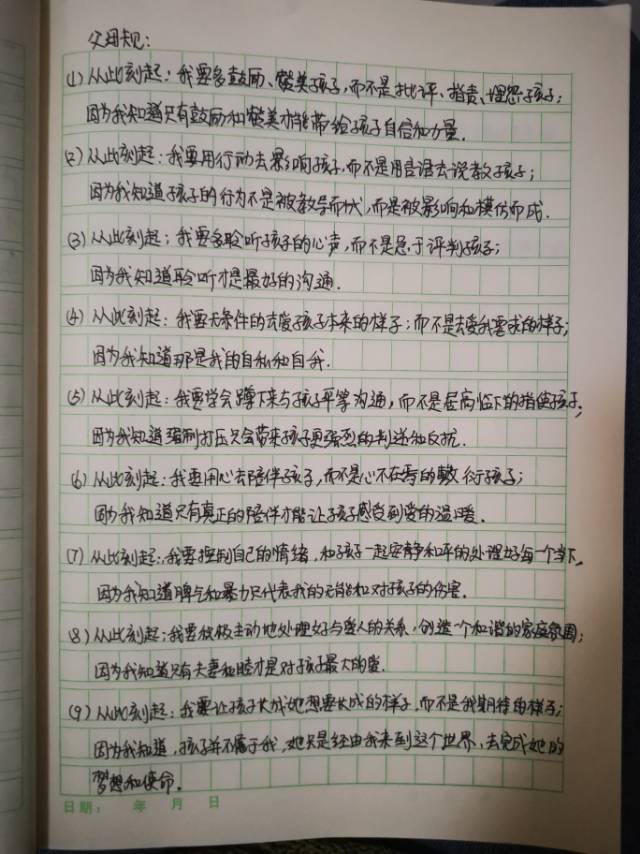 父母规:
(1) 从此刻起:我要多鼓励、赞美孩子,而不是批评、指责、埋怨孩子;
因为我知道只有鼓励和赞美才能带给孩子自信和力量.
(2) 从此刻起:我要用行动去影响孩子,而不是用言语去说教孩子;
因为我知道孩子的行为不是被教导而成,而是被影响和模仿而成.
(3) 从此刻起:我要多聆听孩子的心声,而不是急于评判孩子;
因为我知道聆听才是最好的沟通.
(4) 从此刻起:我要无条件的去爱孩子本来的样子;而不是去爱我要求的样子;
因为我知道那是我的自私和自我.
(5) 从此刻起:我要学会蹲下来与孩子平等沟通,而不是居高临下的指使孩子;
因为我知道强制打压只会带来孩子更强烈的判逆和反抗.
(6) 从此刻起:我要用心去陪伴孩子,而不是心不在焉的敷衍孩子;
因为我知道只有真正的陪伴才能让孩子感受到爱的温暖.
(7) 从此刻起:我要控制自己的情绪,和孩子一起安静和平的处理好每一个当下.
因为我知道脾气和暴力只代表我的无能和对孩子的伤害.
(8) 从此刻起:我要积极主动地处理好与爱人的关系,创造一个和谐的家庭氛围;
因为我知道只有夫妻和睦才是对孩子最大的爱.
(9) 从此刻起:我要让孩子长成她想要长成的样子,而不是我期待的样子;
因为我知道,孩子并不属于我,她只是经由我来到这个世界,去完成她的
梦想和使命.
日期: 年 月 日